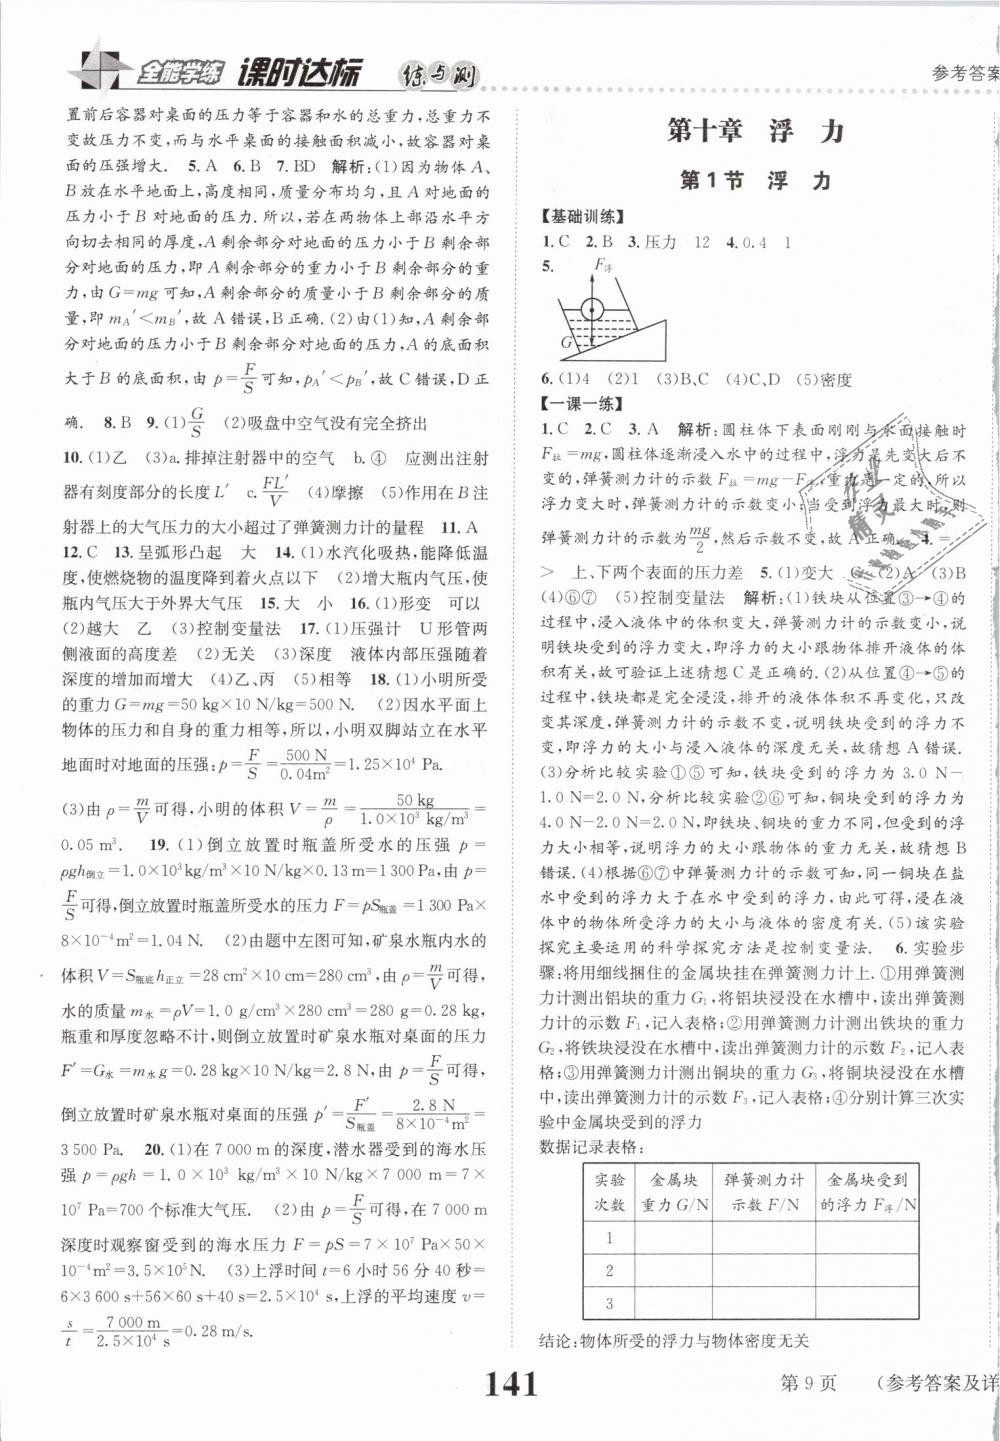 全能学练 课时达标 练与测
参考答案
置前后容器对桌面的压力等于容器和水的总重力,总重力不
变故压力不变,而与水平桌面的接触面积减小,故容器对桌
面的压强增大. 5.A 6.B 7.BD 解析:(1)因为物体A、
B放在水平地面上,高度相同,质量分布均匀,且A对地面的
压力小于B对地面的压力.所以,若在两物体上部沿水平方
向切去相同的厚度,A剩余部分对地面的压力小于B剩余部
分对地面的压力,即A剩余部分的重力小于B剩余部分的重
力,由G=mg可知,A剩余部分的质量小于B剩余部分的质
量,即mA′<mB′,故A错误,B正确.(2)由(1)知,A剩余部
分对地面的压力小于B剩余部分对地面的压力,A的底面积
大于B的底面积,由p=F/S可知,pA′<pB′,故C错误,D正
确. 8.B 9.(1)G/S (2)吸盘中空气没有完全挤出
10.(1)乙 (3)a.排掉注射器中的空气 b.④ 应测出注射
器有刻度部分的长度L′ c.FL′/V (4)摩擦 (5)作用在B注
射器上的大气压力的大小超过了弹簧测力计的量程 11.A
12.C 13.呈弧形凸起 大 14.(1)水汽化吸热,能降低温
度,使燃烧物的温度降到着火点以下 (2)增大瓶内气压,使
瓶内气压大于外界大气压 15.大 小 16.(1)形变 可以
(2)越大 乙 (3)控制变量法 17.(1)压强计 U形管两
侧液面的高度差 (2)无关 (3)深度 液体内部压强随着
深度的增加而增大 (4)乙、丙 (5)相等 18.(1)小明所受
的重力G=mg=50 kg×10 N/kg=500 N. (2)因水平面上
物体的压力和自身的重力相等,所以,小明双脚站立在水平
地面时对地面的压强:p=F/S=500 N/0.04m²=1.25×10⁴ Pa.
(3)由ρ=m/V可得,小明的体积V=m/ρ=50 kg/1.0×10³ kg/m³=
0.05 m³. 19.(1)倒立放置时瓶盖所受水的压强p=
ρgh倒立=1.0×10³kg/m³×10 N/kg×0.13 m=1 300 Pa,由p=
F/S可得,倒立放置时瓶盖所受水的压力F=pS瓶盖=1 300 Pa×
8×10⁻⁴m²=1.04 N. (2)由题中左图可知,矿泉水瓶内水的
体积V=S瓶底h正立=28 cm²×10 cm=280 cm³,由ρ=m/V可得,
水的质量m水=ρV=1.0 g/cm³×280 cm³=280 g=0.28 kg,
瓶重和厚度忽略不计,则倒立放置时矿泉水瓶对桌面的压力
F′=G水=m水g=0.28 kg×10 N/kg=2.8 N,由p=F/S可得,
倒立放置时矿泉水瓶对桌面的压强p′=F′/S瓶盖=2.8 N/8×10⁻⁴m²=
3 500 Pa. 20.(1)在7 000 m的深度,潜水器受到的海水压
强p=ρgh=1.0×10³ kg/m³×10 N/kg×7 000 m=7×
10⁷ Pa=700个标准大气压. (2)由p=F/S可得,在7 000 m
深度时观察窗受到的海水压力F=pS=7×10⁷ Pa×50×
10⁻⁴m²=3.5×10⁵N. (3)上浮时间t=6小时56分40秒=
6×3 600 s+56×60 s+40 s=2.5×10⁴ s,上浮的平均速度v=
s/t=7 000 m/2.5×10⁴ s=0.28 m/s.
第十章 浮 力
第1节 浮 力
【基础训练】
1.C 2.B 3.压力 12 4.0.4 1
5.
F浮
G
6.(1)4 (2)1 (3)B、C (4)C、D (5)密度
【一课一练】
1.C 2.C 3.A 解析:圆柱体下表面刚刚与水面接触时
F拉=mg,圆柱体逐渐浸入水中的过程中,浮力是先变大后不
变的,弹簧测力计的示数F拉=mg-F浮,重力是一定的,所以
浮力变大时,弹簧测力计的示数变小;当受到浮力最大时,则
弹簧测力计的示数为mg/2,然后示数不变,故A正确. 4.=
> 上、下两个表面的压力差 5.(1)变大 C (2)A (3)B
(4)⑥⑦ (5)控制变量法 解析:(1)铁块从位置③→④的
过程中,浸入液体中的体积变大,弹簧测力计的示数变小,说
明铁块受到的浮力变大,即浮力的大小跟物体排开液体的体
积有关,故可验证上述猜想C是正确的.(2)从位置④→⑤的
过程中,铁块都是完全浸没,排开的液体体积不再变化,只改
变其深度,弹簧测力计的示数不变,说明铁块受到的浮力不
变,即浮力的大小与浸入液体的深度无关,故猜想A错误.
(3)分析比较实验①⑤可知,铁块受到的浮力为3.0 N-
1.0 N=2.0 N,分析比较实验②⑥可知,铜块受到的浮力为
4.0 N-2.0 N=2.0 N,即铁块、铜块的重力不同,但受到的浮
力大小相等,说明浮力的大小跟物体的重力无关,故猜想B
错误.(4)根据⑥⑦中弹簧测力计的示数可知,同一铜块在盐
水中受到的浮力大于在水中受到的浮力,由此可得,浸在液
体中的物体所受浮力的大小与液体的密度有关.(5)该实验
探究主要运用的科学探究方法是控制变量法. 6.实验步
骤:将用细线捆住的金属块挂在弹簧测力计上.①用弹簧测
力计测出铝块的重力G₁,将铝块浸没在水槽中,读出弹簧测
力计的示数F₁,记入表格;②用弹簧测力计测出铁块的重力
G₂,将铁块浸没在水槽中,读出弹簧测力计的示数F₂,记入表
格;③用弹簧测力计测出铜块的重力G₃,将铜块浸没在水槽
中,读出弹簧测力计的示数F₃,记入表格;④分别计算三次实
验中金属块受到的浮力
数据记录表格:
实验次数 金属块重力G/N 弹簧测力计示数F/N 金属块受到的浮力F浮/N
1
2
3
结论:物体所受的浮力与物体密度无关
141
第9页
(参考答案及详
作业
精灵